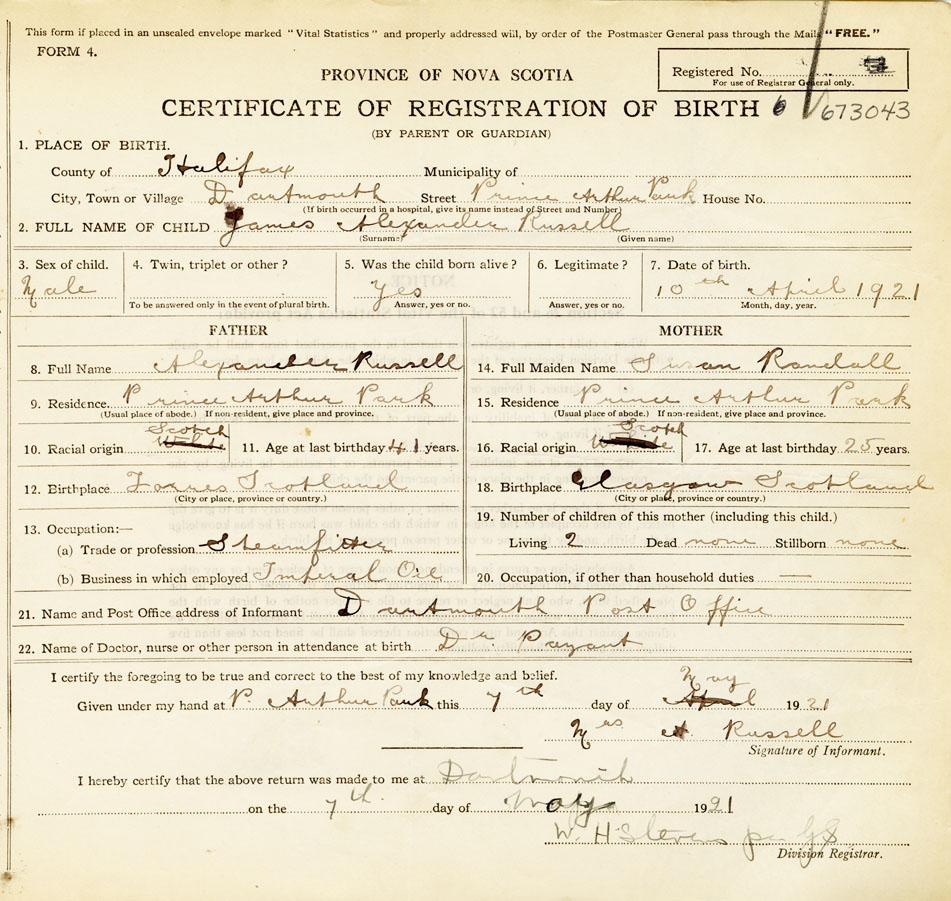 This form if placed in an unsealed envelope marked "Vital Statistics" and properly addressed will, by order of the Postmaster General pass through the Mails "FREE."
FORM 4.
PROVINCE OF NOVA SCOTIA
Registered No.
For use of Registrar General only.
CERTIFICATE OF REGISTRATION OF BIRTH 6 673043
(BY PARENT OR GUARDIAN)
1. PLACE OF BIRTH.
County of Halifax Municipality of
City, Town or Village Dartmouth Street Prince Arthur Park House No.
(If birth occurred in a hospital, give its name instead of Street and Number)
2. FULL NAME OF CHILD James Alexander Russell
(Surname) (Given name)
3. Sex of child. 4. Twin, triplet or other? 5. Was the child born alive? 6. Legitimate? 7. Date of birth.
Male Yes 10th April 1921
To be answered only in the event of plural birth. Answer, yes or no. Answer, yes or no. Month, day, year.
FATHER
8. Full Name Alexander Russell
9. Residence. Prince Arthur Park
(Usual place of abode.) If non-resident, give place and province.
Scotch
10. Racial origin White 11. Age at last birthday 41 years.
12. Birthplace Forres Scotland
(City or place, province or country.)
13. Occupation:—
(a) Trade or profession Steamfitter
(b) Business in which employed Imperal Oil
MOTHER
14. Full Maiden Name Susan Randall
15. Residence Prince Arthur Park
(Usual place of abode.) If non-resident, give place and province.
Scotch
16. Racial origin White 17. Age at last birthday 25 years.
18. Birthplace Glasgow Scotland
(City or place, province or country.)
19. Number of children of this mother (including this child.)
Living 2 Dead none Stillborn none
20. Occupation, if other than household duties —
21. Name and Post Office address of Informant Dartmouth Post Office
22. Name of Doctor, nurse or other person in attendance at birth Dr Payzant
I certify the foregoing to be true and correct to the best of my knowledge and belief.
May
Given under my hand at P. Arthur Park this 7th day of April 1921
Mrs A Russell
Signature of Informant.
I hereby certify that the above return was made to me at Dartmouth
on the 7th day of May 1921
W. H Stevens per
Division Registrar.